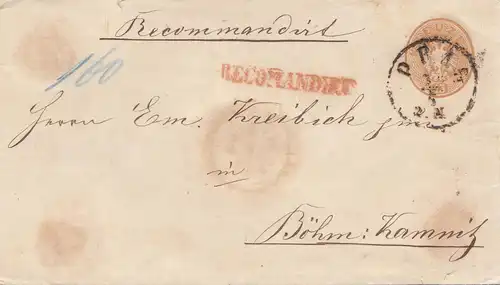 Recommandirt
160
RECOMANDIRT
PRAG
Herrn Em. Kreibich jun.
in
Böhm: Kamnitz